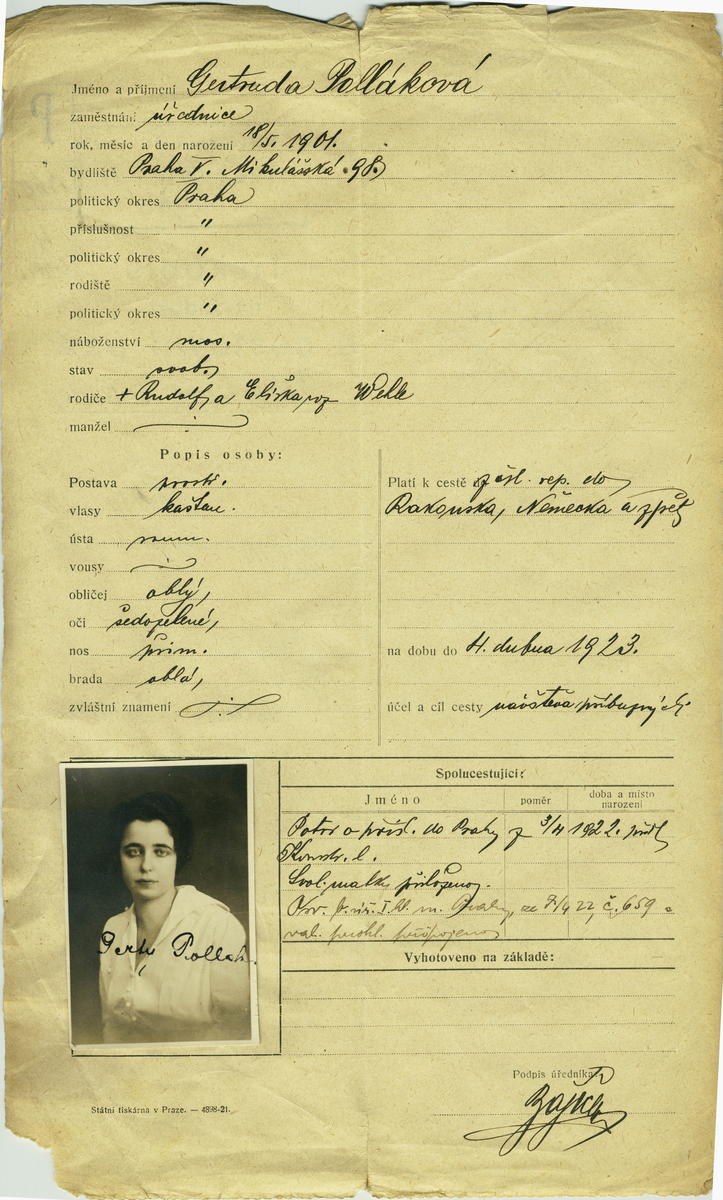 Jméno a příjmení Gertruda Polláková
zaměstnání úřednice
rok, měsíc a den narození 18/5. 1901.
bydliště Praha V. Mikulášská 98
politický okres Praha
příslušnost "
politický okres "
rodiště "
politický okres "
náboženství mos.
stav svob.
rodiče + Rudolf a Eliška roz Wehle
manžel
Popis osoby:
Postava prostř.
vlasy kaštan.
ústa
vousy
obličej oblý,
oči šedozelené,
nos přim.
brada oblá,
zvláštní znamení
Platí k cestě z čsl. rep. do
Rakouska, Německa a zpět
na dobu do 4. dubna 1923.
účel a cíl cesty návštěva příbuzných
Spolucestující:
Jméno poměr doba a místo narození
Potvr o přísl. do Prahy z 3/4 1922.
Svol. matky přiloženo.
7/4 22, č. 659
připojeno
Vyhotoveno na základě:
Gerty Pollak
Podpis úředníka:
Státní tiskárna v Praze. — 4898-21.